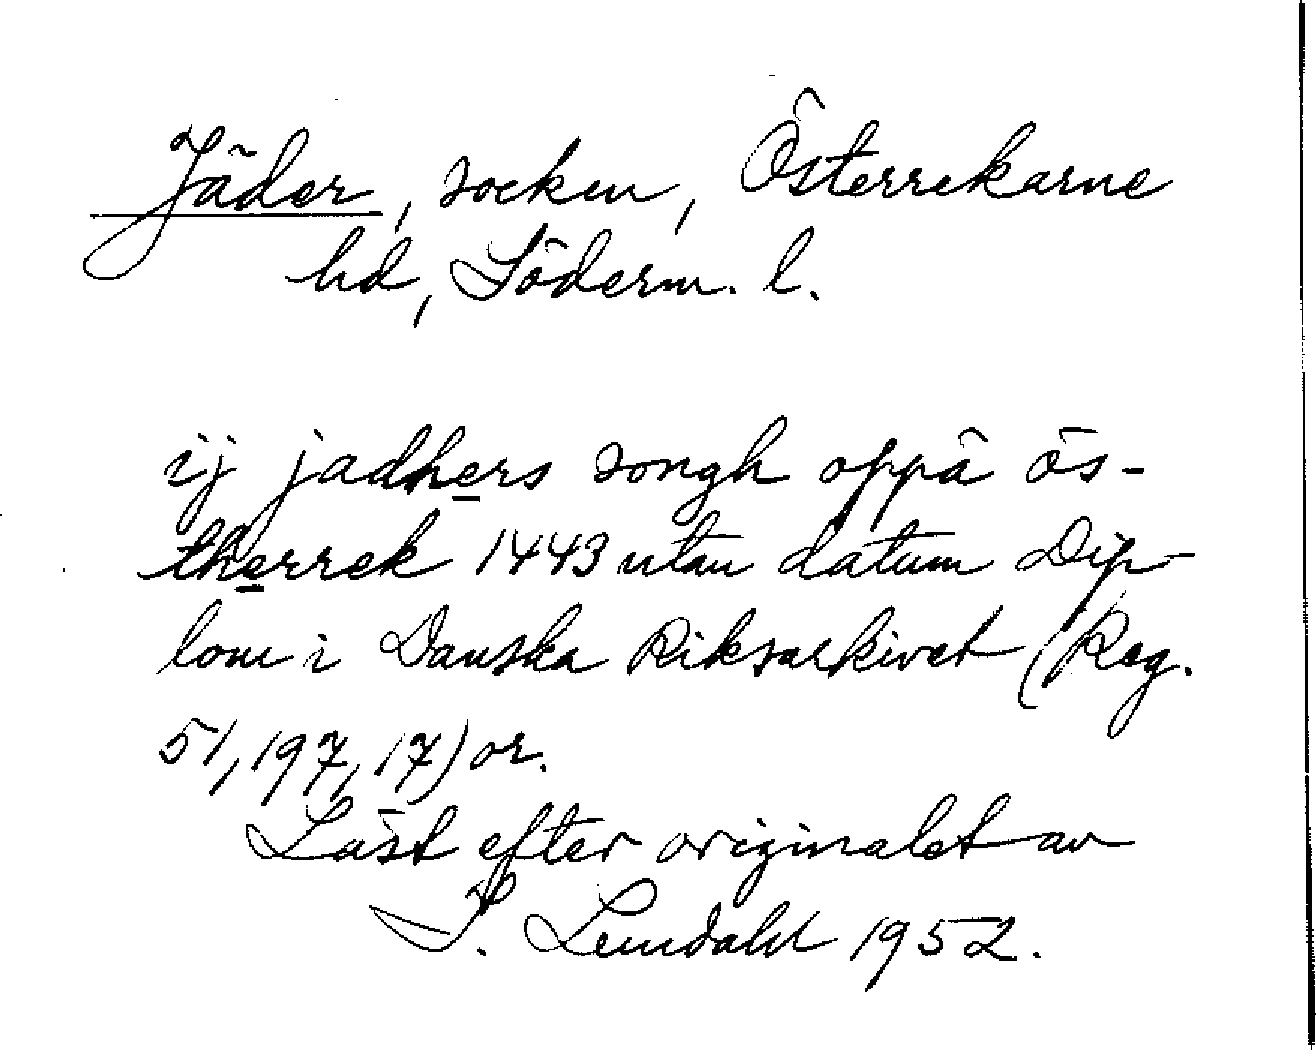 Jäder, socken, Österrekarne
hd, Söderm. l.
ij jadhers songh oppå ös-
therrek 1443 utan datum Dip-
lom i Danska Riksarkivet (Reg.
51, 197, 17) or.
Läst efter originalet av
I. Lundahl 1952.